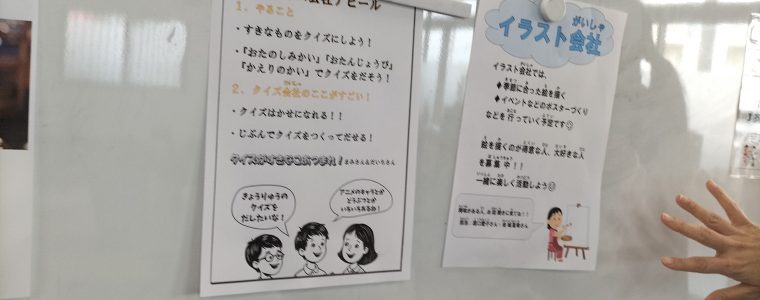 会社アピール
1. やること
・すきなものをクイズにしよう！
・「おたのしみかい」「おたんじょうび」
「かえりのかい」でクイズをだそう！
2. クイズ会社のここがすごい！
・クイズはかせになれる！！
・じぶんでクイズをつくってだせる！
きょうりゅうの
クイズを
だしたいな！
アニメのキャラとか
どうぶつとか
いろいろあるね！
イラスト会社
がいしゃ
イラスト会社では、
◆季節に合った絵を描く
◆イベントなどのポスターづくり
などを行っていく予定です☺
絵を描くのが得意な人、大好きな人
を募集中！！
一緒に楽しく活動しよう☺